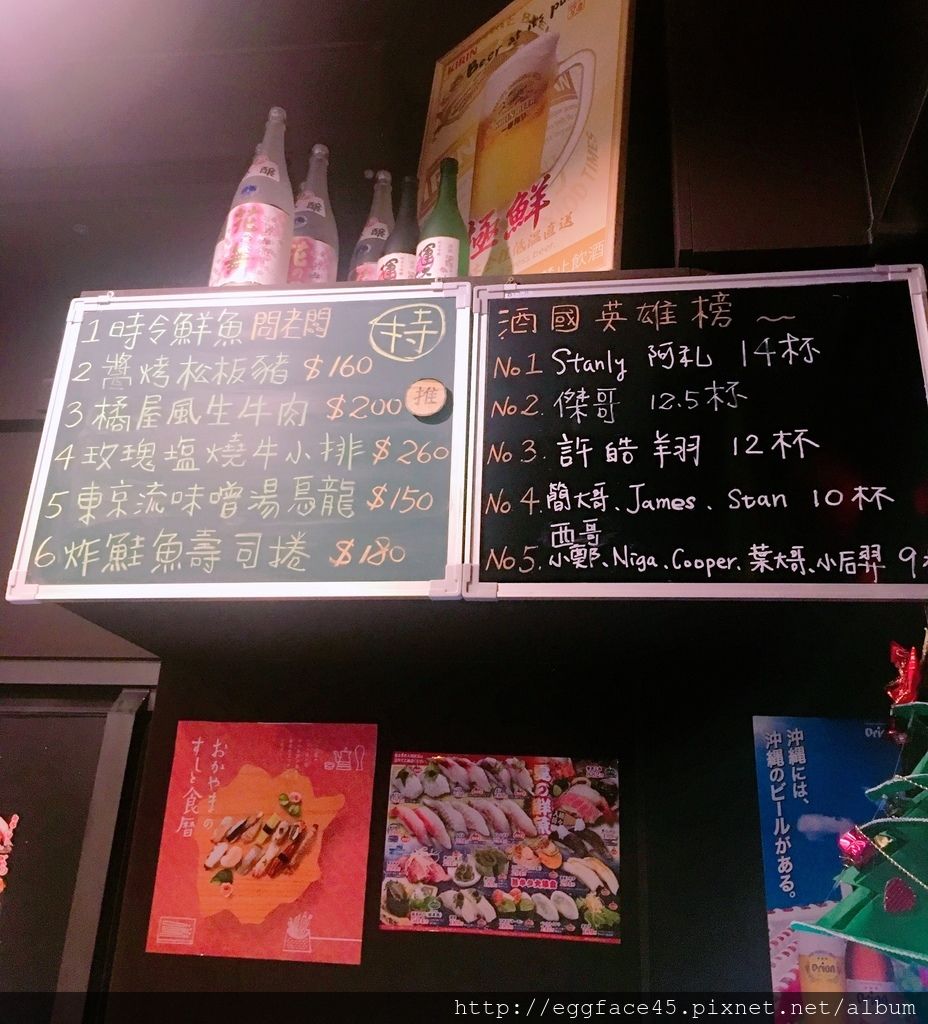 KIRIN
Beer at its pu
極鮮
低溫直送
止飲酒
醸
醸
醸
1 時令鮮魚 問老闆
特
2 醬烤松板豬 $160
3 橘屋風生牛肉 $200
推
4 玫瑰塩燒牛小排 $260
5 東京流味噌湯烏龍 $150
6 炸鮭魚壽司捲 $180
酒國英雄榜~
No 1 Stanly 阿礼 14杯
No 2. 傑哥 12.5杯
No 3. 許皓翔 12杯
No 4. 簡大哥、James、Stan 10杯
西哥
No 5. 小鄭、Niga、Cooper、葉大哥、小后羿 9
おかやまの
すしと食暦
沖縄には、
沖縄のビールがある。
Orion
http://eggface45.pixnet.net/album